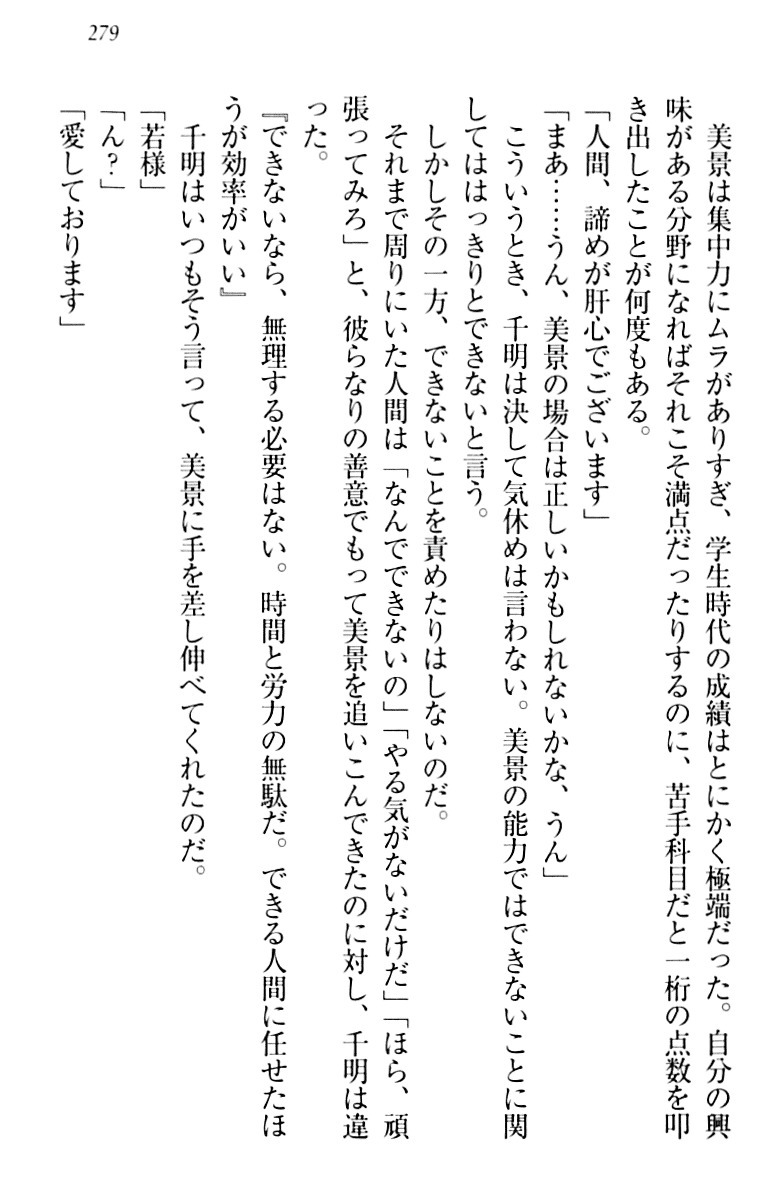 279
美景は集中力にムラがありすぎ、学生時代の成績はとにかく極端だった。自分の興
味がある分野になればそれこそ満点だったりするのに、苦手科目だと一桁の点数を叩
き出したことが何度もある。
「人間、諦めが肝心でございます」
「まあ……うん、美景の場合は正しいかもしれないかな、うん」
こういうとき、千明は決して気休めは言わない。美景の能力ではできないことに関
してははっきりとできないと言う。
しかしその一方、できないことを責めたりはしないのだ。
それまで周りにいた人間は「なんでできないの」「やる気がないだけだ」「ほら、頑
張ってみろ」と、彼らなりの善意でもって美景を追いこんできたのに対し、千明は違
った。
『できないなら、無理する必要はない。時間と労力の無駄だ。できる人間に任せたほ
うが効率がいい』
千明はいつもそう言って、美景に手を差し伸べてくれたのだ。
「若様」
「ん？」
「愛しております」